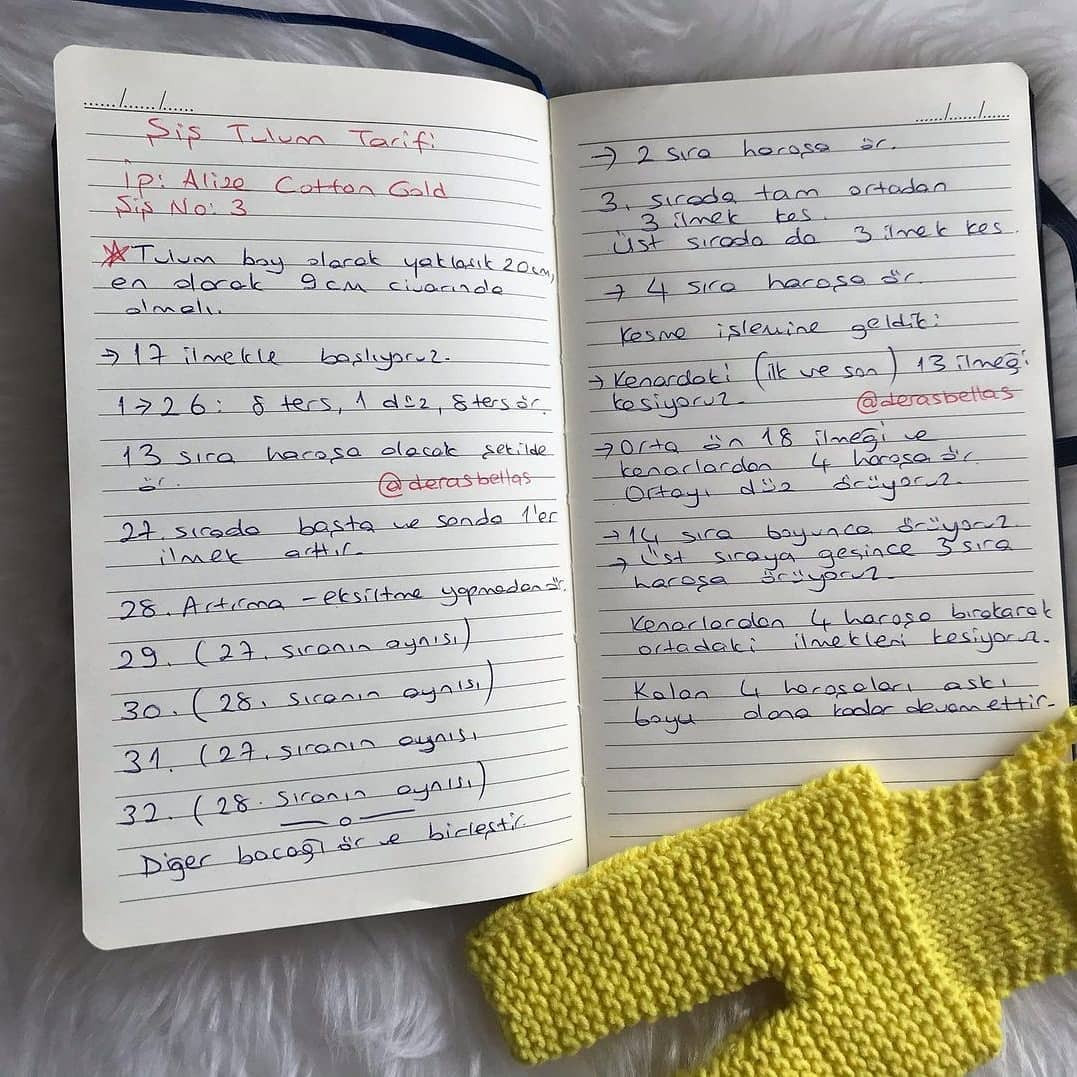 ....../....../......
Şiş Tulum Tarifi
İp: Alize Cotton Gold
Şiş No: 3
Tulum boy olarak yaklaşık 20cm,
en olarak 9 cm civarında
olmalı.
→ 17 ilmekle başlıyoruz.
1→26: 8 ters, 1 düz, 8 ters ör.
13 sıra haroşa olacak şekilde
ör.
@derasbellas
27. sırada başta ve sonda 1'er
ilmek arttır.
28. Artırma - eksiltme yapmadan ör.
29. (27. sıranın aynısı)
30. (28. sıranın aynısı)
31. (27. sıranın aynısı
32. (28. sıranın aynısı)
Diğer bacağı ör ve birleştir.
....../....../......
→ 2 sıra haroşa ör.
3. sırada tam ortadan
3 ilmek kes.
Üst sırada da 3 ilmek kes.
→ 4 sıra haroşa ör.
Kesme işlemine geldik:
→ Kenardaki (ilk ve son) 13 ilmeği
kesiyoruz.
@derasbellas
→ Orta ön 18 ilmeği ve
kenarlardan 4 haroşa ör.
Ortayı düz örüyoruz.
→ 14 sıra boyunca örüyoruz.
→ Üst sıraya geçince 3 sıra
haroşa örüyoruz.
Kenarlardan 4 haroşa bırakarak
ortadaki ilmekleri kesiyoruz.
Kalan 4 haroşaları askı
boyu olana kadar devam ettir.